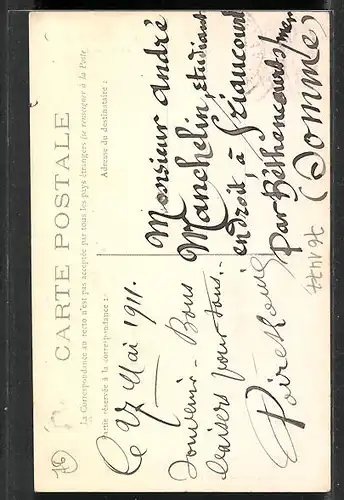 CARTE POSTALE
La Correspondance au recto n'est pas acceptée par tous les pays étrangers (se renseigner à la Poste
Partie réservée à la correspondance :
Adresse du destinataire :
Le 27 Mai 1911.
Souvenir - Bons
baisers pour tous. -
Monsieur André
Manchelin, étudiant
en droit, à Friaucourt
par Béthencourt s/mer
(Somme)